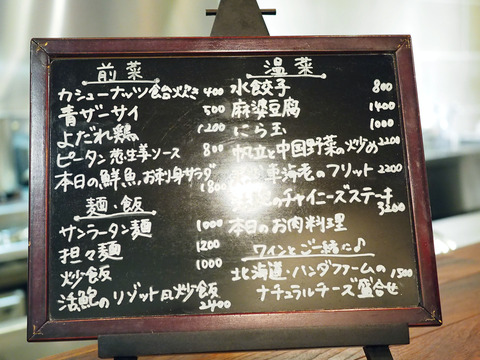 前菜
カシューナッツ飴炊き 400
青ザーサイ 500
よだれ鶏 1200
ピータン 葱生姜ソース 800
本日の鮮魚お刺身サラダ 1800
麺・飯
サンラータン麺 1000
担々麺 1200
炒飯 1000
活鮑のリゾット風炒飯 2400
温菜
水餃子 800
麻婆豆腐 1400
にら玉 1000
帆立と中国野菜の炒め 2200
車海老のフリット 2200
のチャイニーズステーキ 3200
本日のお肉料理
ワインとご一緒に♪
北海道・ハンダファームの 1500
ナチュラルチーズ盛合せ